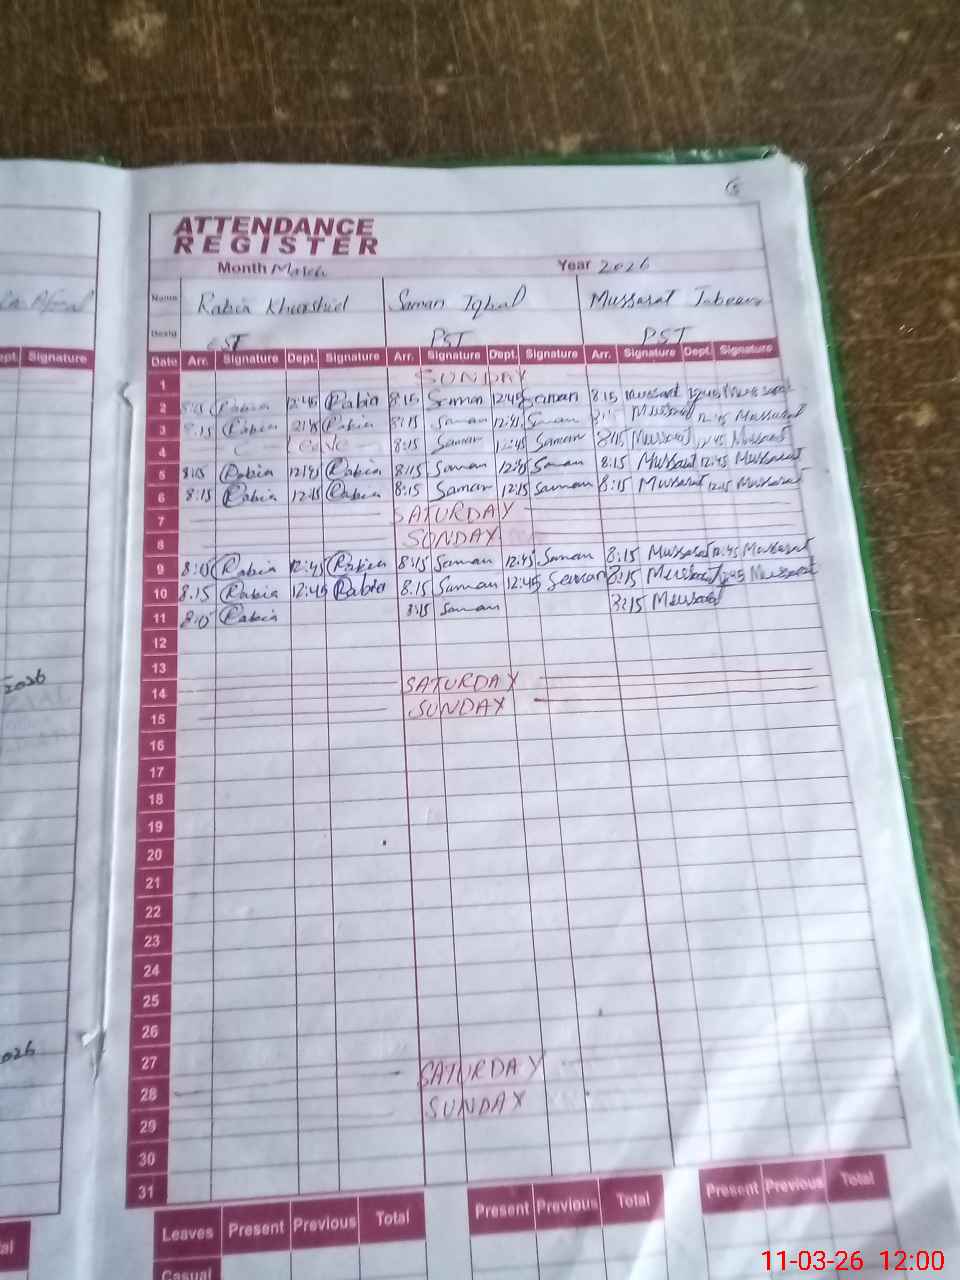 6
ATTENDANCE
REGISTER
Month March Year 2026
Name Rabia Khurshid Saman Iqbal Mussarat Jabeen
Desig EST PST PST
ept. Signature
Date Arr. Signature Dept. Signature Arr. Signature Dept. Signature Arr. Signature Dept. Signature
1 SUNDAY
2 8:15 Rabia 12:45 Rabia 8:15 Saman 12:45 Saman 8:15 Mussarat 12:45 Mussarat
3 8:15 Rabia Rabia 8:15 Saman 12:45 Saman 8:15 Mussarat 12:45 Mussarat
4 Leave 8:15 Saman 12:45 Saman 8:15 Mussarat 12:45 Mussarat
5 Rabia 12:45 Rabia 8:15 Saman 12:45 Saman 8:15 Mussarat 12:45 Mussarat
6 8:15 Rabia 12:15 Rabia 8:15 Saman 12:15 Saman 8:15 Mussarat 12:15 Mussarat
7 SATURDAY
8 SUNDAY
9 Rabia 12:45 Rabia 8:15 Saman 12:45 Saman 8:15 Mussarat 12:45 Mussarat
10 8:15 Rabia 12:45 Rabia 8:15 Saman 12:45 Saman 8:15 Mussarat 12:45 Mussarat
11 Rabia 8:15 Saman 8:15 Mussarat
12
13
2026
14 SATURDAY
15 SUNDAY
16
17
18
19
20
21
22
23
24
25
26
27
026
28 SATURDAY
29 SUNDAY
30
31
Leaves Present Previous Total Present Previous Total Present Previous Total
tal
Casual
11-03-26 12:00